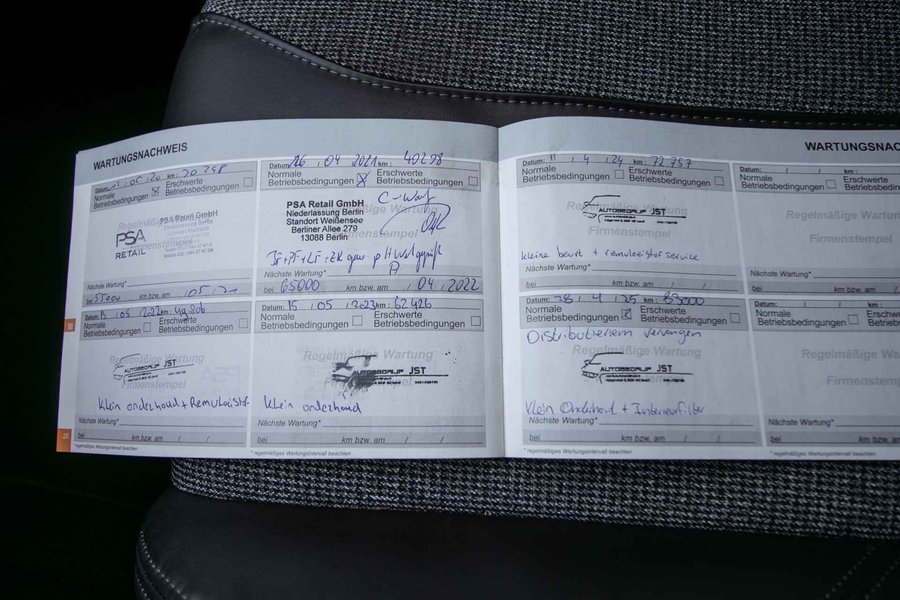 WARTUNGSNACHWEIS
Datum: 05 20 km: 20 258
Normale Betriebsbedingungen
Erschwerte Betriebsbedingungen
Regelmäßige Wartung
PSA Retail GmbH
PSA
RETAIL
Firmenstempel
Nächste Wartung*
bei 55000 km bzw. am / 05 / 21
Datum: 26 . 04 . 2021 km: 40298
Normale Betriebsbedingungen
Erschwerte Betriebsbedingungen
Regelmäßige Wartung
PSA Retail GmbH
Niederlassung Berlin
Standort Weißensee
Berliner Allee 279
13088 Berlin
Nächste Wartung*
bei 65000 km bzw. am / 04 / 2022
Datum: 05 / 2022 km: 49.806
Normale Betriebsbedingungen
Erschwerte Betriebsbedingungen
Regelmäßige Wartung
AUTOBEDRIJF JST
Firmenstempel
Klein onderhoud + Remvloeistof
Nächste Wartung*
bei km bzw. am / /
* regelmäßiges Wartungsintervall beachten
Datum: 15 / 05 / 2023 km: 62 426
Normale Betriebsbedingungen
Erschwerte Betriebsbedingungen
Regelmäßige Wartung
AUTOBEDRIJF JST
Firmenstempel
Klein onderhoud
Nächste Wartung*
bei km bzw. am / /
* regelmäßiges Wartungsintervall beachten
25
WARTUNGSNAC
Datum: 11 / 4 / 24 km: 72.757
Normale Betriebsbedingungen
Erschwerte Betriebsbedingungen
Regelmäßige Wartung
AUTOBEDRIJF JST
Firmenstempel
Kleine beurt + remvloeistof service
Nächste Wartung*
bei km bzw. am / /
Datum: / / km:
Normale Betriebsbedingungen
Erschwerte Betriebsbedingungen
Regelmäßige Wartung
Firmenstempel
Nächste Wartung*
bei km bzw. am
Datum: 28 / 4 / 25 km: 83000
Normale Betriebsbedingungen
Erschwerte Betriebsbedingungen
Distributieriem vervangen
Regelmäßige Wartung
AUTOBEDRIJF JST
Firmenstempel
Klein Onderhoud + Interieurfilter
Nächste Wartung*
bei km bzw. am / /
* regelmäßiges Wartungsintervall beachten
Datum: / / km:
Normale Betriebsbedingungen
Erschwerte Betriebsbedingungen
Regelmäßige Wartung
Firmenstempel
Nächste Wartung*
bei km bzw. am
* regelmäßiges Wartungsintervall beachten